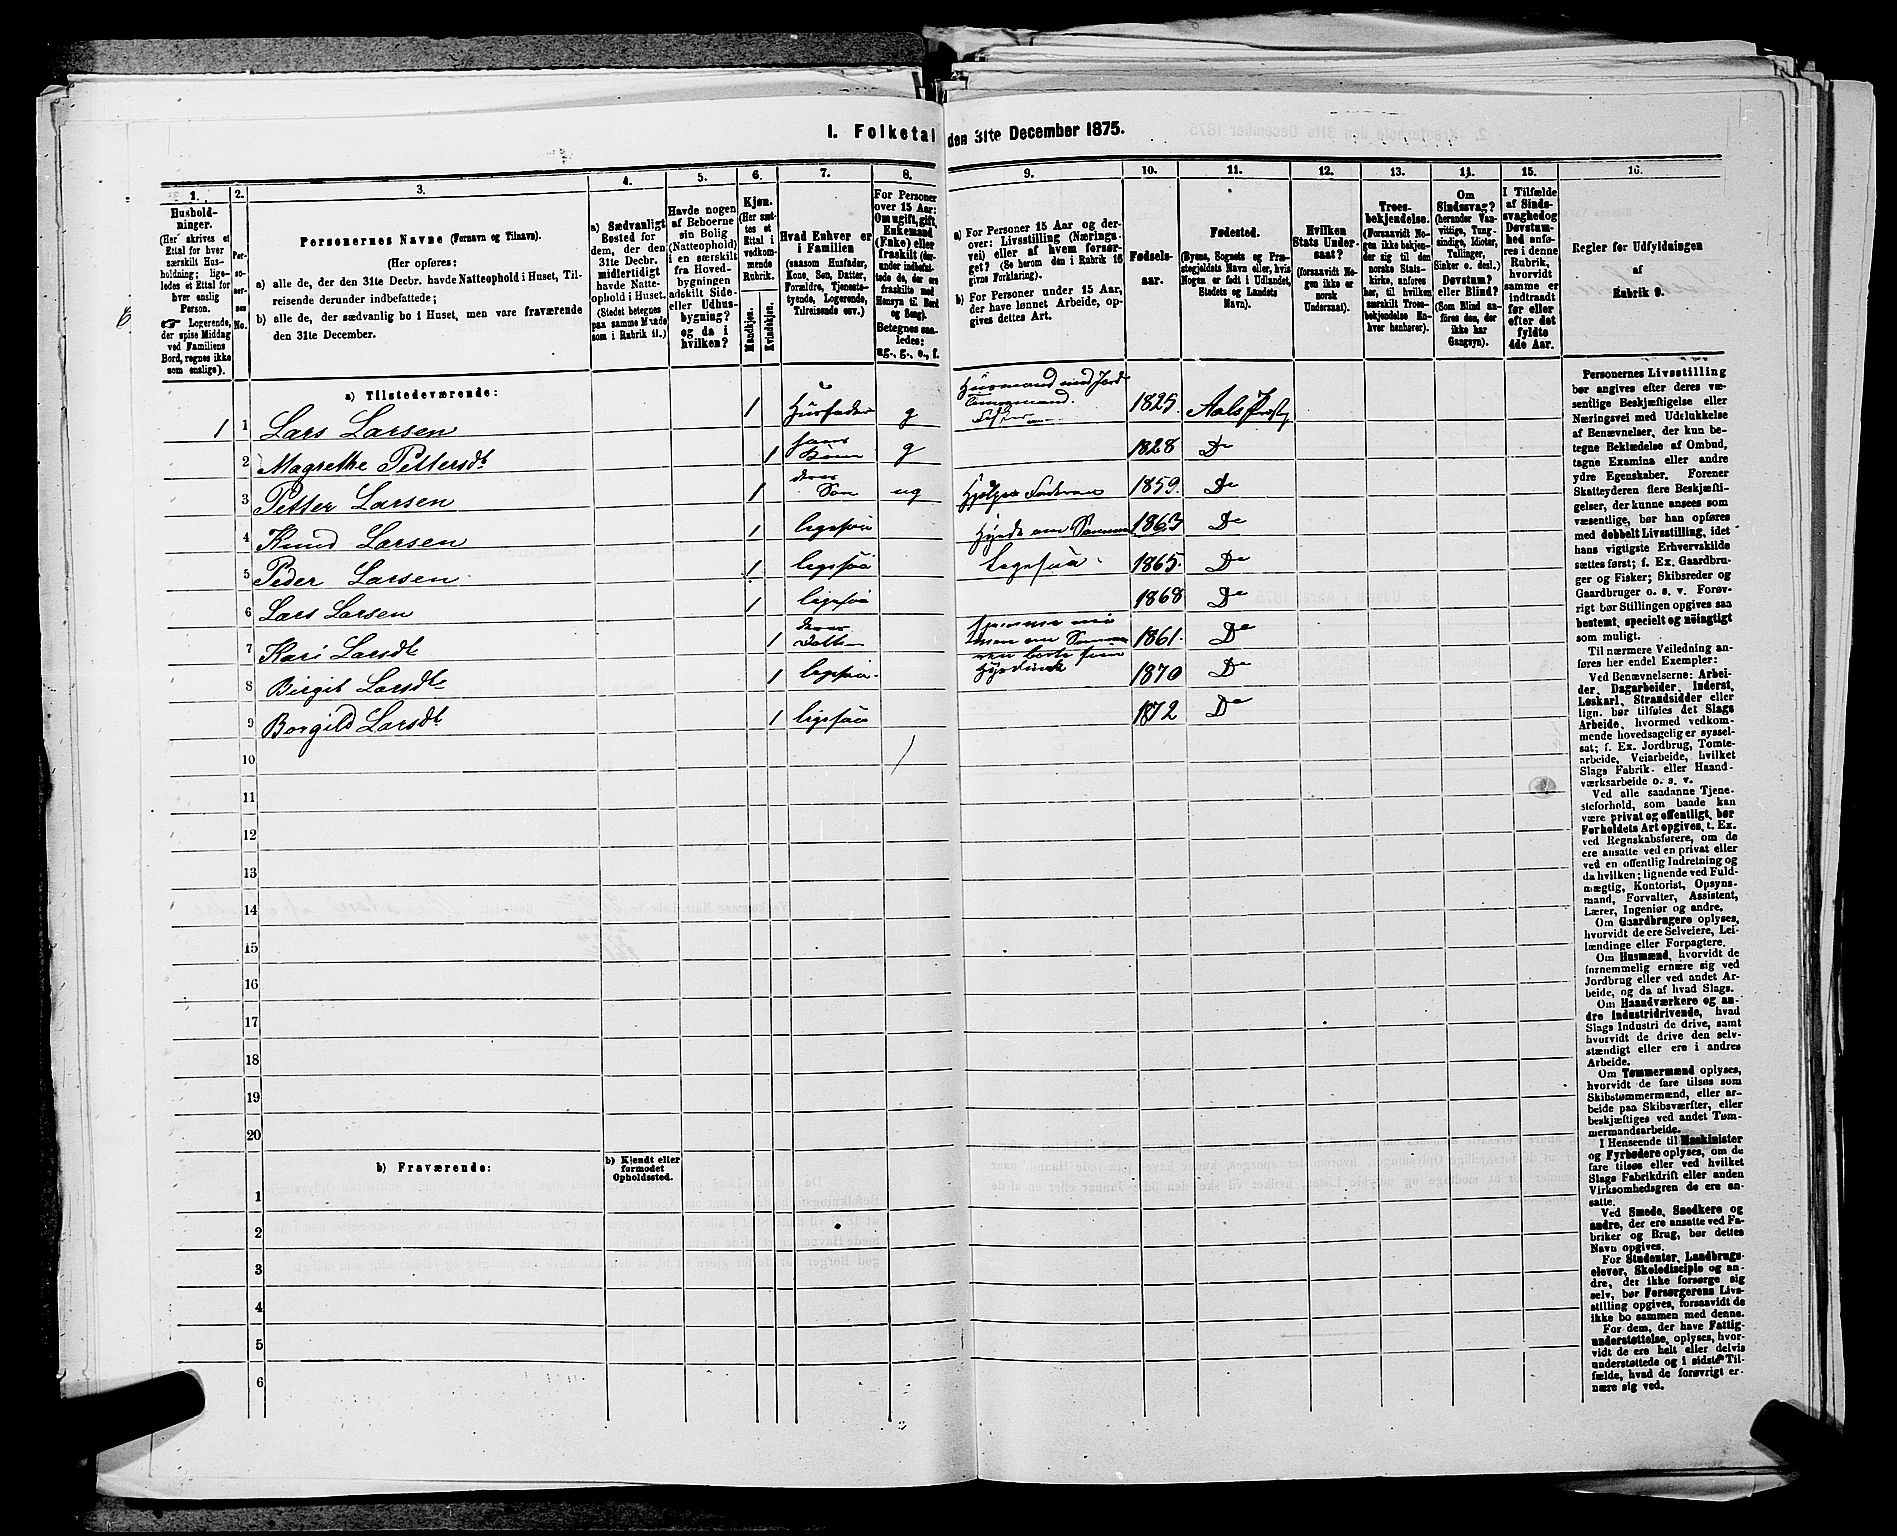 I. Folketal den 31te December 1875.
1. 2. 3. 4. 5. 6. 7. 8. 9. 10. 11. 12. 13. 14. 15. 16.
Hushold-
ninger.
(Her skrives et
Ettal for hver
særskilt Hus-
holdning; lige-
ledes et Ettal for
hver enslig
Person.
☞ Logerende,
der spise Middag
ved Familiens
Bord, regnes ikke
som enslige).
Per-
so-
ner-
nes
No.
Personernes Navne (Fornavn og Tilnavn).
(Her opføres:
a) alle de, der den 31te Decbr. havde Natteophold i Huset, Til-
reisende derunder indbefattede;
b) alle de, der sædvanlig bo i Huset, men vare fraværende
den 31te December.
a) Sædvanligt
Bosted for
dem, der den
31te Decbr.
midlertidigt
havde Natte-
ophold i Huset.
(Stedet betegnes
paa samme Maade
som i Rubrik 11.)
Havde nogen
af Beboerne
sin Bolig
(Natteophold)
i en særskilt
fra Hoved-
bygningen
adskilt Side-
eller Udhus-
bygning?
og da i
hvilken?
Kjøn.
(Her sæt-
tes et
Ettal i
vedkom-
mende
Rubrik.
Mandkjøn.
Kvindekjøn.
Hvad Enhver er
i Familien
(saasom Husfader,
Kone, Søn, Datter,
Forældre, Tjeneste-
tyende, Logerende,
Tilreisende osv.)
For Personer
over 15 Aar:
Om ugift, gift,
Enkemand
(Enke) eller
fraskilt (der-
under indbefat-
tede de, der ere
fraskilte med
Hensyn til Bord
og Seng).
Betegnes saa-
ledes:
ug., g., e., f.
a) For Personer 15 Aar og der-
over: Livsstilling (Nærings-
vei) eller af hvem forsør-
get? (Se herom den i Rubrik 16
givne Forklaring).
b) For Personer under 15 Aar,
der have lønnet Arbeide, op-
gives dettes Art.
Fødsels-
aar.
Fødested.
(Byens, Sognets og Præ-
stegjeldets Navn eller, hvis
Nogen er født i Udlandet,
Stedets og Landets
Navn).
Hvilken
Stats Under-
saat?
(forsaavidt No-
gen ikke er
norsk
Undersaat).
Troes-
bekjendelse.
(Forsaavidt No-
gen ikke bekjen-
der sig til den
norske Stats-
kirke, anføres
her, til hvilken
særskilt Troes-
bekjendelse En-
hver henhører).
Om
Sindssvag?
(herunder Van-
vittige, Tung-
sindige, Idioter,
Tullinger,
Sinker o. desl.)
Døvstum?
eller Blind?
(Som Blind an-
føres den, der
ikke har
Gangsyn).
I Tilfælde
af Sinds-
svaghed og
Døvstum-
hed anfø-
res i denne
Rubrik,
hvorvidt
samme er
indtraadt
før eller
efter det
fyldte
4de Aar.
Regler for Udfyldningen
af
Rubrik 9.
a) Tilstedeværende:
1 1 Lars Larsen 1 Husfader g Husmand med Jord 1825. Aals
2 Magrethe Pettersdt 1 hans Kone g 1828 Do
3 Petter Larsen 1 deres Søn ug Hjelper Faderen 1859. Do
4 Knud Larsen 1 ligesaa 1863 Do
5 Peder Larsen 1 ligesaa Ligesaa 1865. Do
6 Lars Larsen 1 ligesaa 1868 Do
7 Kari Larsdt 1 deres Datter 1861. Do
8 Birgit Larsdt 1 ligesaa 1870 Do
9 Borgild Larsdt 1 ligesaa 1872 Do
10
11
12
13
14
15
16
17
18
19
20
b) Fraværende:
b) Kjendt eller
formodet
Opholdssted.
1
2
3
4
5
6
Personernes Livsstilling
bør angives efter deres væ-
sentlige Beskjæftigelse eller
Næringsvei med Udelukkelse
af Benævnelser, der kun be-
tegne Beklædelse af Ombud,
tagne Examina eller andre
ydre Egenskaber. Forener
Skatteyderen flere Beskjæfti-
gelser, der kunne ansees som
væsentlige, bør han opføres
med dobbelt Livsstilling, idet
hans vigtigste Erhvervskilde
sættes først; f. Ex. Gaardbru-
ger og Fisker; Skibsreder og
Gaardbruger o. s. v. Forøv-
rigt bør Stillingen opgives saa
bestemt, specielt og nøiagtigt
som muligt.
Til nærmere Veiledning an-
føres her endel Exempler:
Ved Benævnelserne: Arbei-
der, Dagarbeider, Inderst,
Løskarl, Strandsidder eller
lign. bør tilføies det Slags
Arbeide, hvormed vedkom-
mende hovedsagelig er syssel-
sat; f. Ex. Jordbrug, Tomte-
arbeide, Veiarbeide, hvilket
Slags Fabrik- eller Haand-
værksarbeide o. s. v.
Ved alle saadanne Tjene-
steforhold, som baade kan
være privat og offentligt, bør
Forholdets Art opgives, t. Ex.
ved Regnskabsførere, om de
ere ansatte ved en privat eller
ved en offentlig Indretning og
da hvilken; lignende ved Fuld-
mægtig, Kontorist, Opsyns-
mand, Forvalter, Assistent,
Lærer, Ingeniør og andre.
Om Gaardbrugere oplyses,
hvorvidt de ere Selveiere, Lei-
lændinge eller Forpagtere.
Om Husmænd, hvorvidt de
fornemmelig ernære sig ved
Jordbrug eller ved andet Ar-
beide, og da af hvad Slags.
Om Haandværkere og an-
dre Industridrivende, hvad
Slags Industri de drive, samt
hvorvidt de drive den selv-
stændigt eller ere i andres
Arbeide.
Om Tømmermænd oplyses,
hvorvidt de fare tilsøs som
Skibstømmermænd, eller ar-
beide paa Skibsværfter, eller
beskjæftiges ved andet Tøm-
mermandsarbeide.
I Henseende til Maskinister
og Fyrbødere oplyses, om de
fare tilsøs eller ved hvilket
Slags Fabrikdrift eller anden
Virksomhedsgren de ere an-
satte.
Ved Smede, Snedkere og
andre, der ere ansatte ved Fa-
briker og Brug, bør dettes
Navn opgives.
For Studenter, Landbrugs-
elever, Skoledisciple og an-
dre, der ikke forsørge sig
selv, bør Forsørgerens Livs-
stilling opgives, forsaavidt de
ikke bo sammen med denne.
For dem, der have Fattig-
understøttelse, oplyses, hvor-
vidt de ere helt eller delvis
understøttede og i sidste Til-
fælde, hvad de forøvrigt er-
nære sig ved.